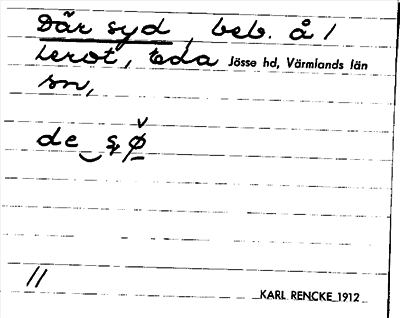 Där syd, beb. å 1
Lerot, Eda Jösse hd, Värmlands län
sn,
de
11
KARL RENCKE 1912